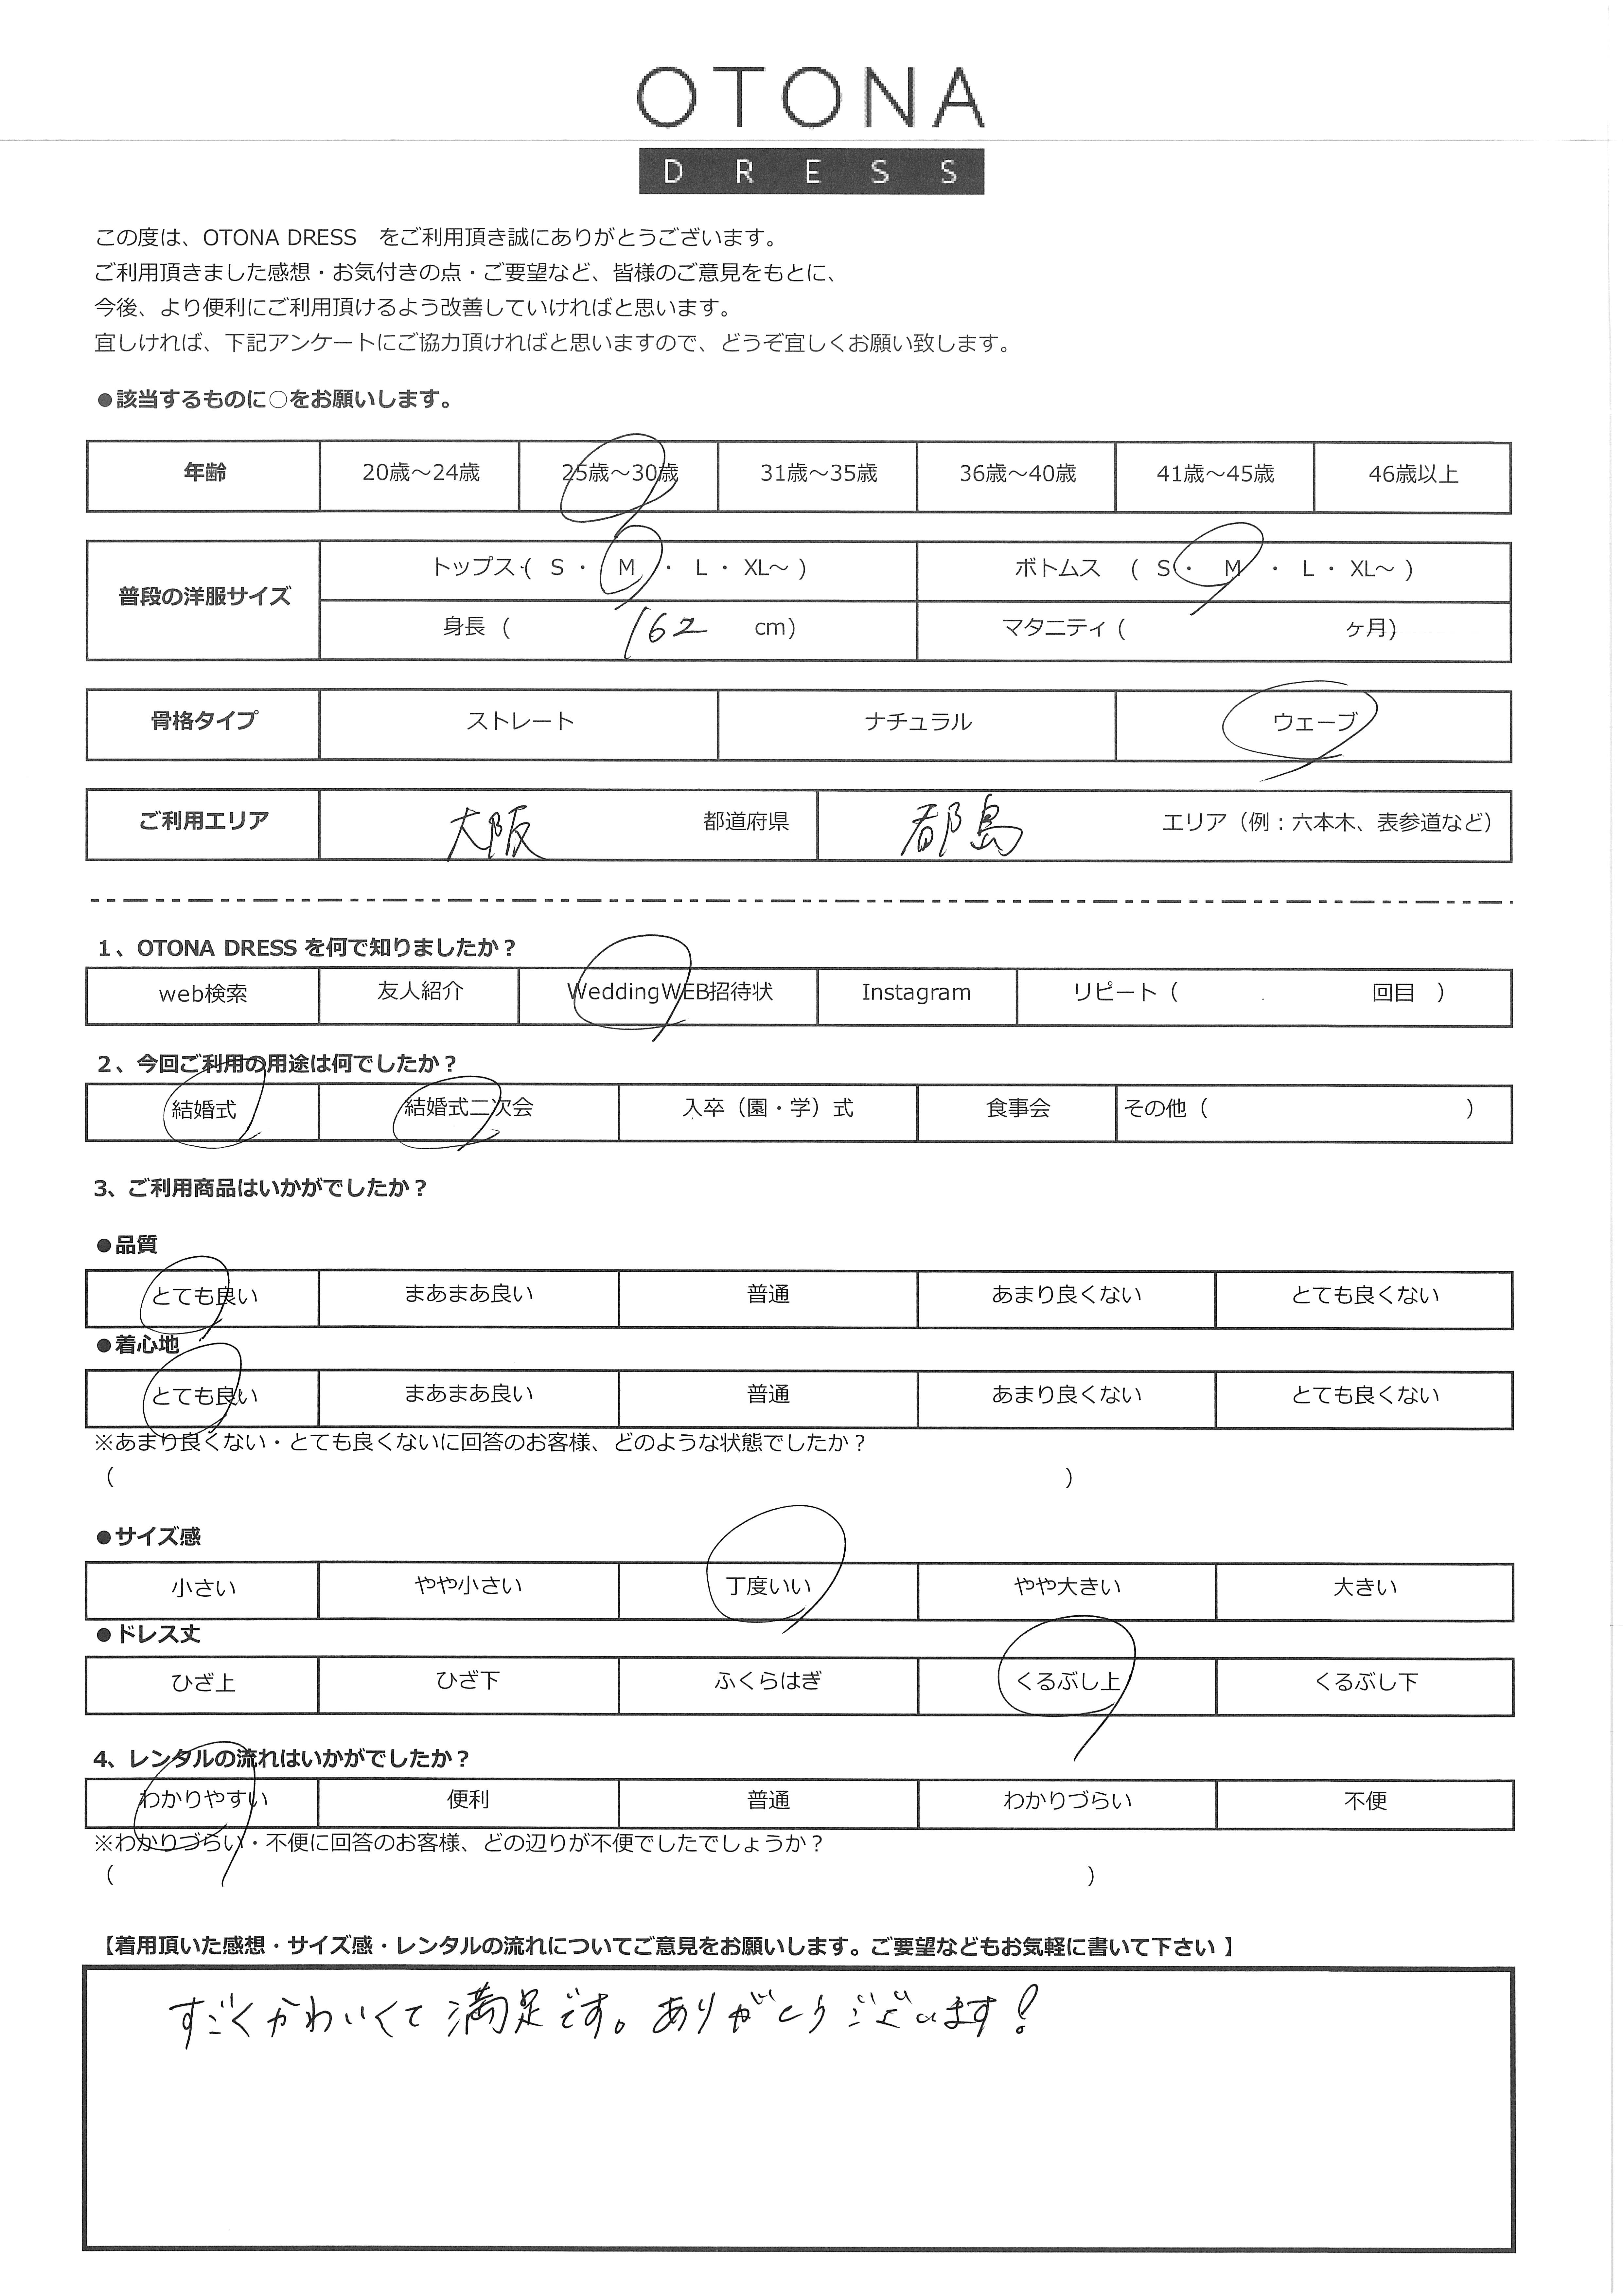 OTONA
DRESS
この度は、OTONA DRESS　をご利用頂き誠にありがとうございます。
ご利用頂きました感想・お気付きの点・ご要望など、皆様のご意見をもとに、
今後、より便利にご利用頂けるよう改善していければと思います。
宜しければ、下記アンケートにご協力頂ければと思いますので、どうぞ宜しくお願い致します。
●該当するものに○をお願いします。
年齢 20歳～24歳 25歳～30歳 31歳～35歳 36歳～40歳 41歳～45歳 46歳以上
普段の洋服サイズ トップス ( S ・ M ・ L ・ XL～ ) ボトムス ( S ・ M ・ L ・ XL～ )
身長 ( 162 cm) マタニティ ( ヶ月)
骨格タイプ ストレート ナチュラル ウェーブ
ご利用エリア 大阪 都道府県 都島 エリア（例：六本木、表参道など）
1、OTONA DRESS を何で知りましたか？
web検索 友人紹介 WeddingWEB招待状 Instagram リピート（ 回目 ）
2、今回ご利用の用途は何でしたか？
結婚式 結婚式二次会 入卒（園・学）式 食事会 その他（ ）
3、ご利用商品はいかがでしたか？
●品質
とても良い まあまあ良い 普通 あまり良くない とても良くない
●着心地
とても良い まあまあ良い 普通 あまり良くない とても良くない
※あまり良くない・とても良くないに回答のお客様、どのような状態でしたか？
（ ）
●サイズ感
小さい やや小さい 丁度いい やや大きい 大きい
●ドレス丈
ひざ上 ひざ下 ふくらはぎ くるぶし上 くるぶし下
4、レンタルの流れはいかがでしたか？
わかりやすい 便利 普通 わかりづらい 不便
※わかりづらい・不便に回答のお客様、どの辺りが不便でしたでしょうか？
（ ）
【着用頂いた感想・サイズ感・レンタルの流れについてご意見をお願いします。ご要望などもお気軽に書いて下さい 】
すごくかわいくて満足です。ありがとうございます!